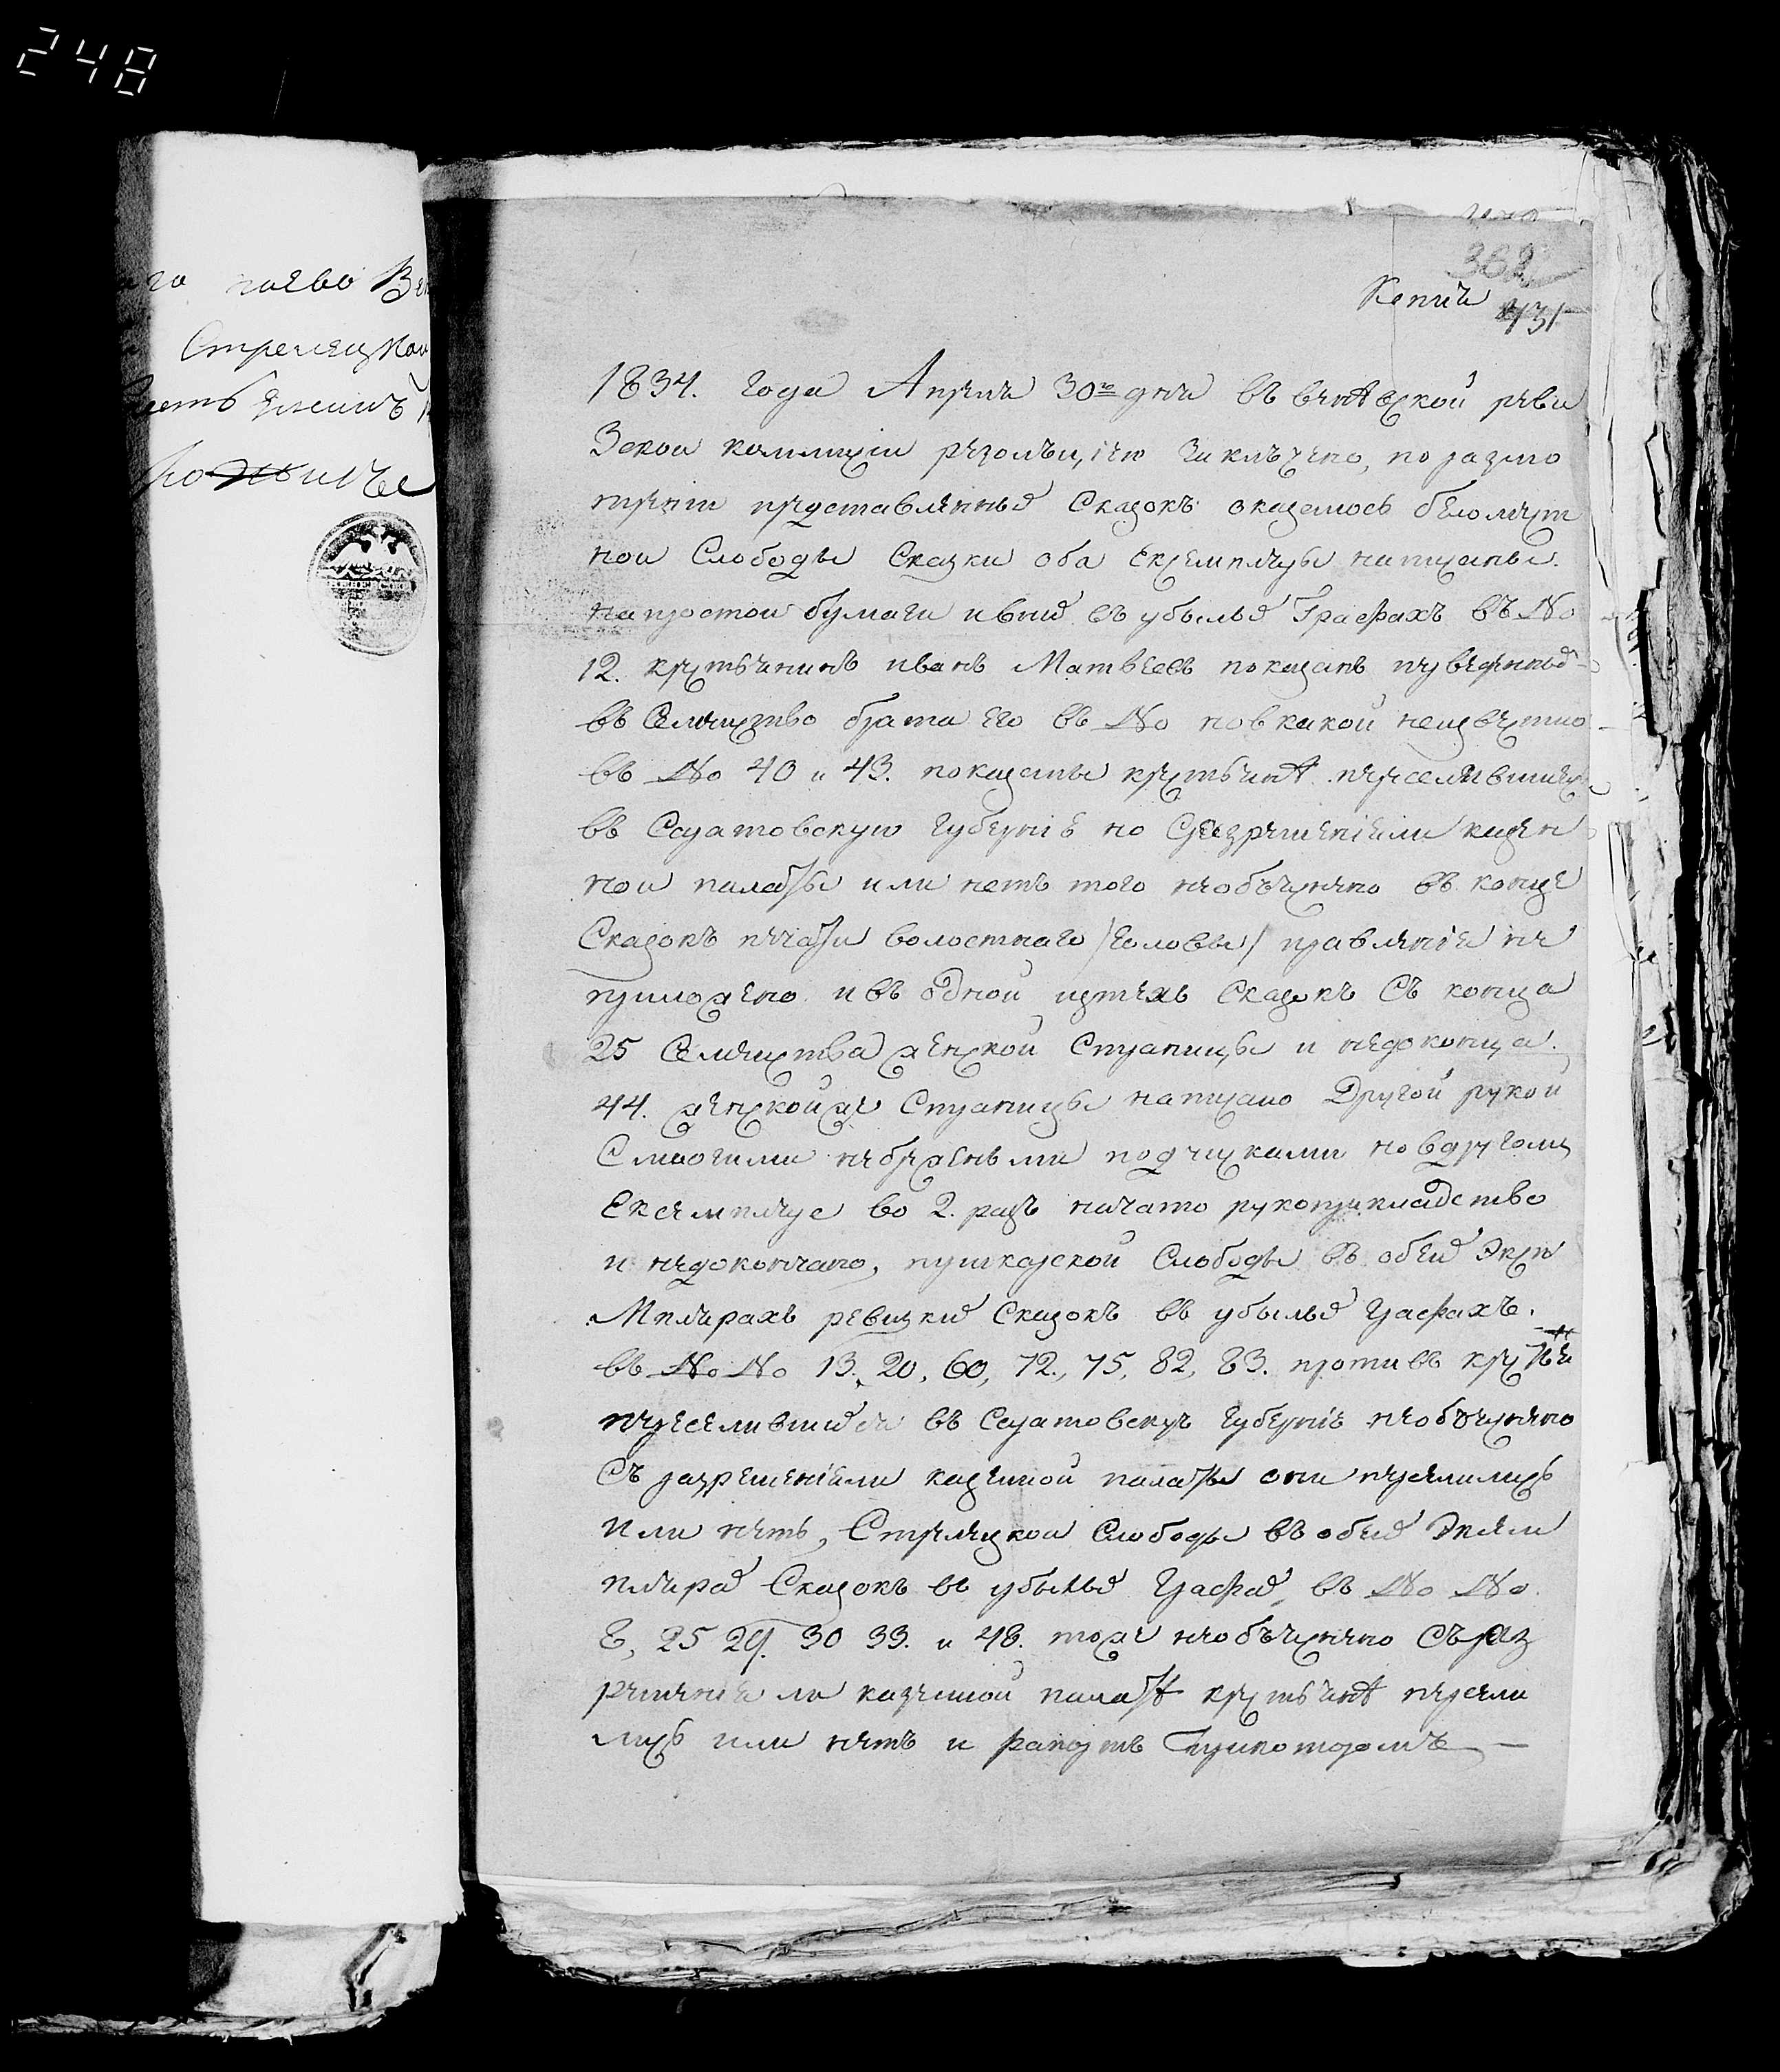 248
го
Стрелецкой
362
Копия
431
1834. года Апреля 30го дня въ веневской реви
зской коммисіи резолюціею заключено, по разсмо
треніи представленныхъ Сказокъ оказалось беломест
ной Слободы Сказки оба Екземпляры написаны
на простой бумаги и въ нихъ въ убылыхъ Графахъ въ No
12. крестьянинъ иванъ Матвеевъ показанъ переведеннымъ
въ Семейство брата его въ No но в какой неизвестно
въ No 40 и 43. показаны крестьяне переселившиеся
въ Саратовскую губернію но С разрешеніемли казен
ной палаты или нетъ того необъяснено въ конце
Сказокъ печати волостнаго /головы/ правленія не
приложено и въ одной изтехъ Сказокъ Съ конца
25 Семейства женской Страницы и недоконца
44. женскойже Страницы написано Другой рукой
С многими небрежными подчистками но вдругомъ
Екземпляре во 2. разъ начато рукоприкладство
и недокончано, пушкарской Слободы въ обеихъ Экзе
мплярахъ ревизкихъ Сказокъ въ убылыхъ графахъ
въ No No 13, 20, 60, 72, 75, 82, 83. противъ крестьянъ
переселившихся въ Саратовскую губернію необъяснено
Съ разрешеніемли казенной палаты они переселились
Или нетъ, Стрелецкой Слободы въ обеихъ Экзем
плярахъ Сказокъ въ убылыхъ Графахъ въ No No
8, 25 29. 30 33. и 48. тоже необъяснено Съ раз
решенія ли казенной палаты крестьяне пересели
лись или нетъ и рапортъ Прикоторомъ